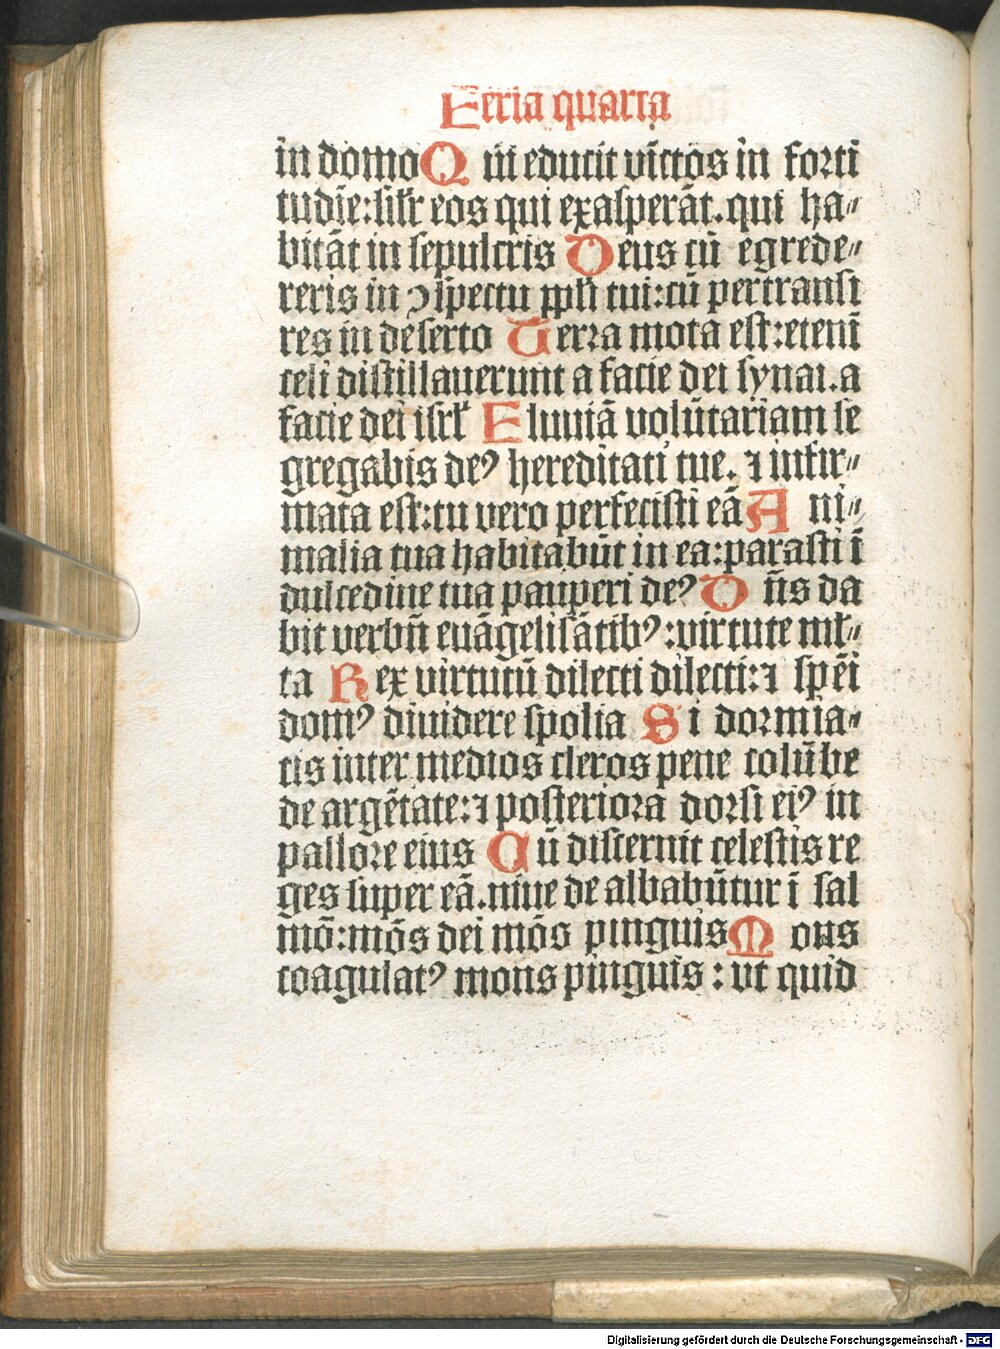 Feria quarta
in domo Q ui educit victos in forti
tudīe: sil'r eos qui exasperāt. qui ha⸗
bitāt in sepulcris Deus cū egrede⸗
reris in ↄspectu ppl'i tui: cū pertransi
res in deserto Terra mota est: eteni
celi distillauerunt a facie dei synai. a
facie dei isrl' Eluuiā volūtariam se
gregabis deꝰ hereditati tue. ⁊ infir⸗
mata est: tu vero perfecisti eā Ani⸗
malia tua habitabūt in ea: parasti ī
dulcedine tua pauperi deꝰ Dn̄s da
bit verbū euāgelisātibꝰ: virtute ml't⸗
ta Rex virtutū dilecti dilecti: ⁊ spēi
domꝰ diuidere spolia Si dormia⸗
tis inter medios cleros pene colūbe
de argētate: ⁊ posteriora dorsi eiꝰ in
pallore eius Cū discernit celestis re
ges super eā. niue de albabūtur ī sal
mō: mōs dei mōs pinguis Mons
coagulatꝰ mons pinguis: ut quid
Digitalisierung gefördert durch die Deutsche Forschungsgemeinschaft - DFG